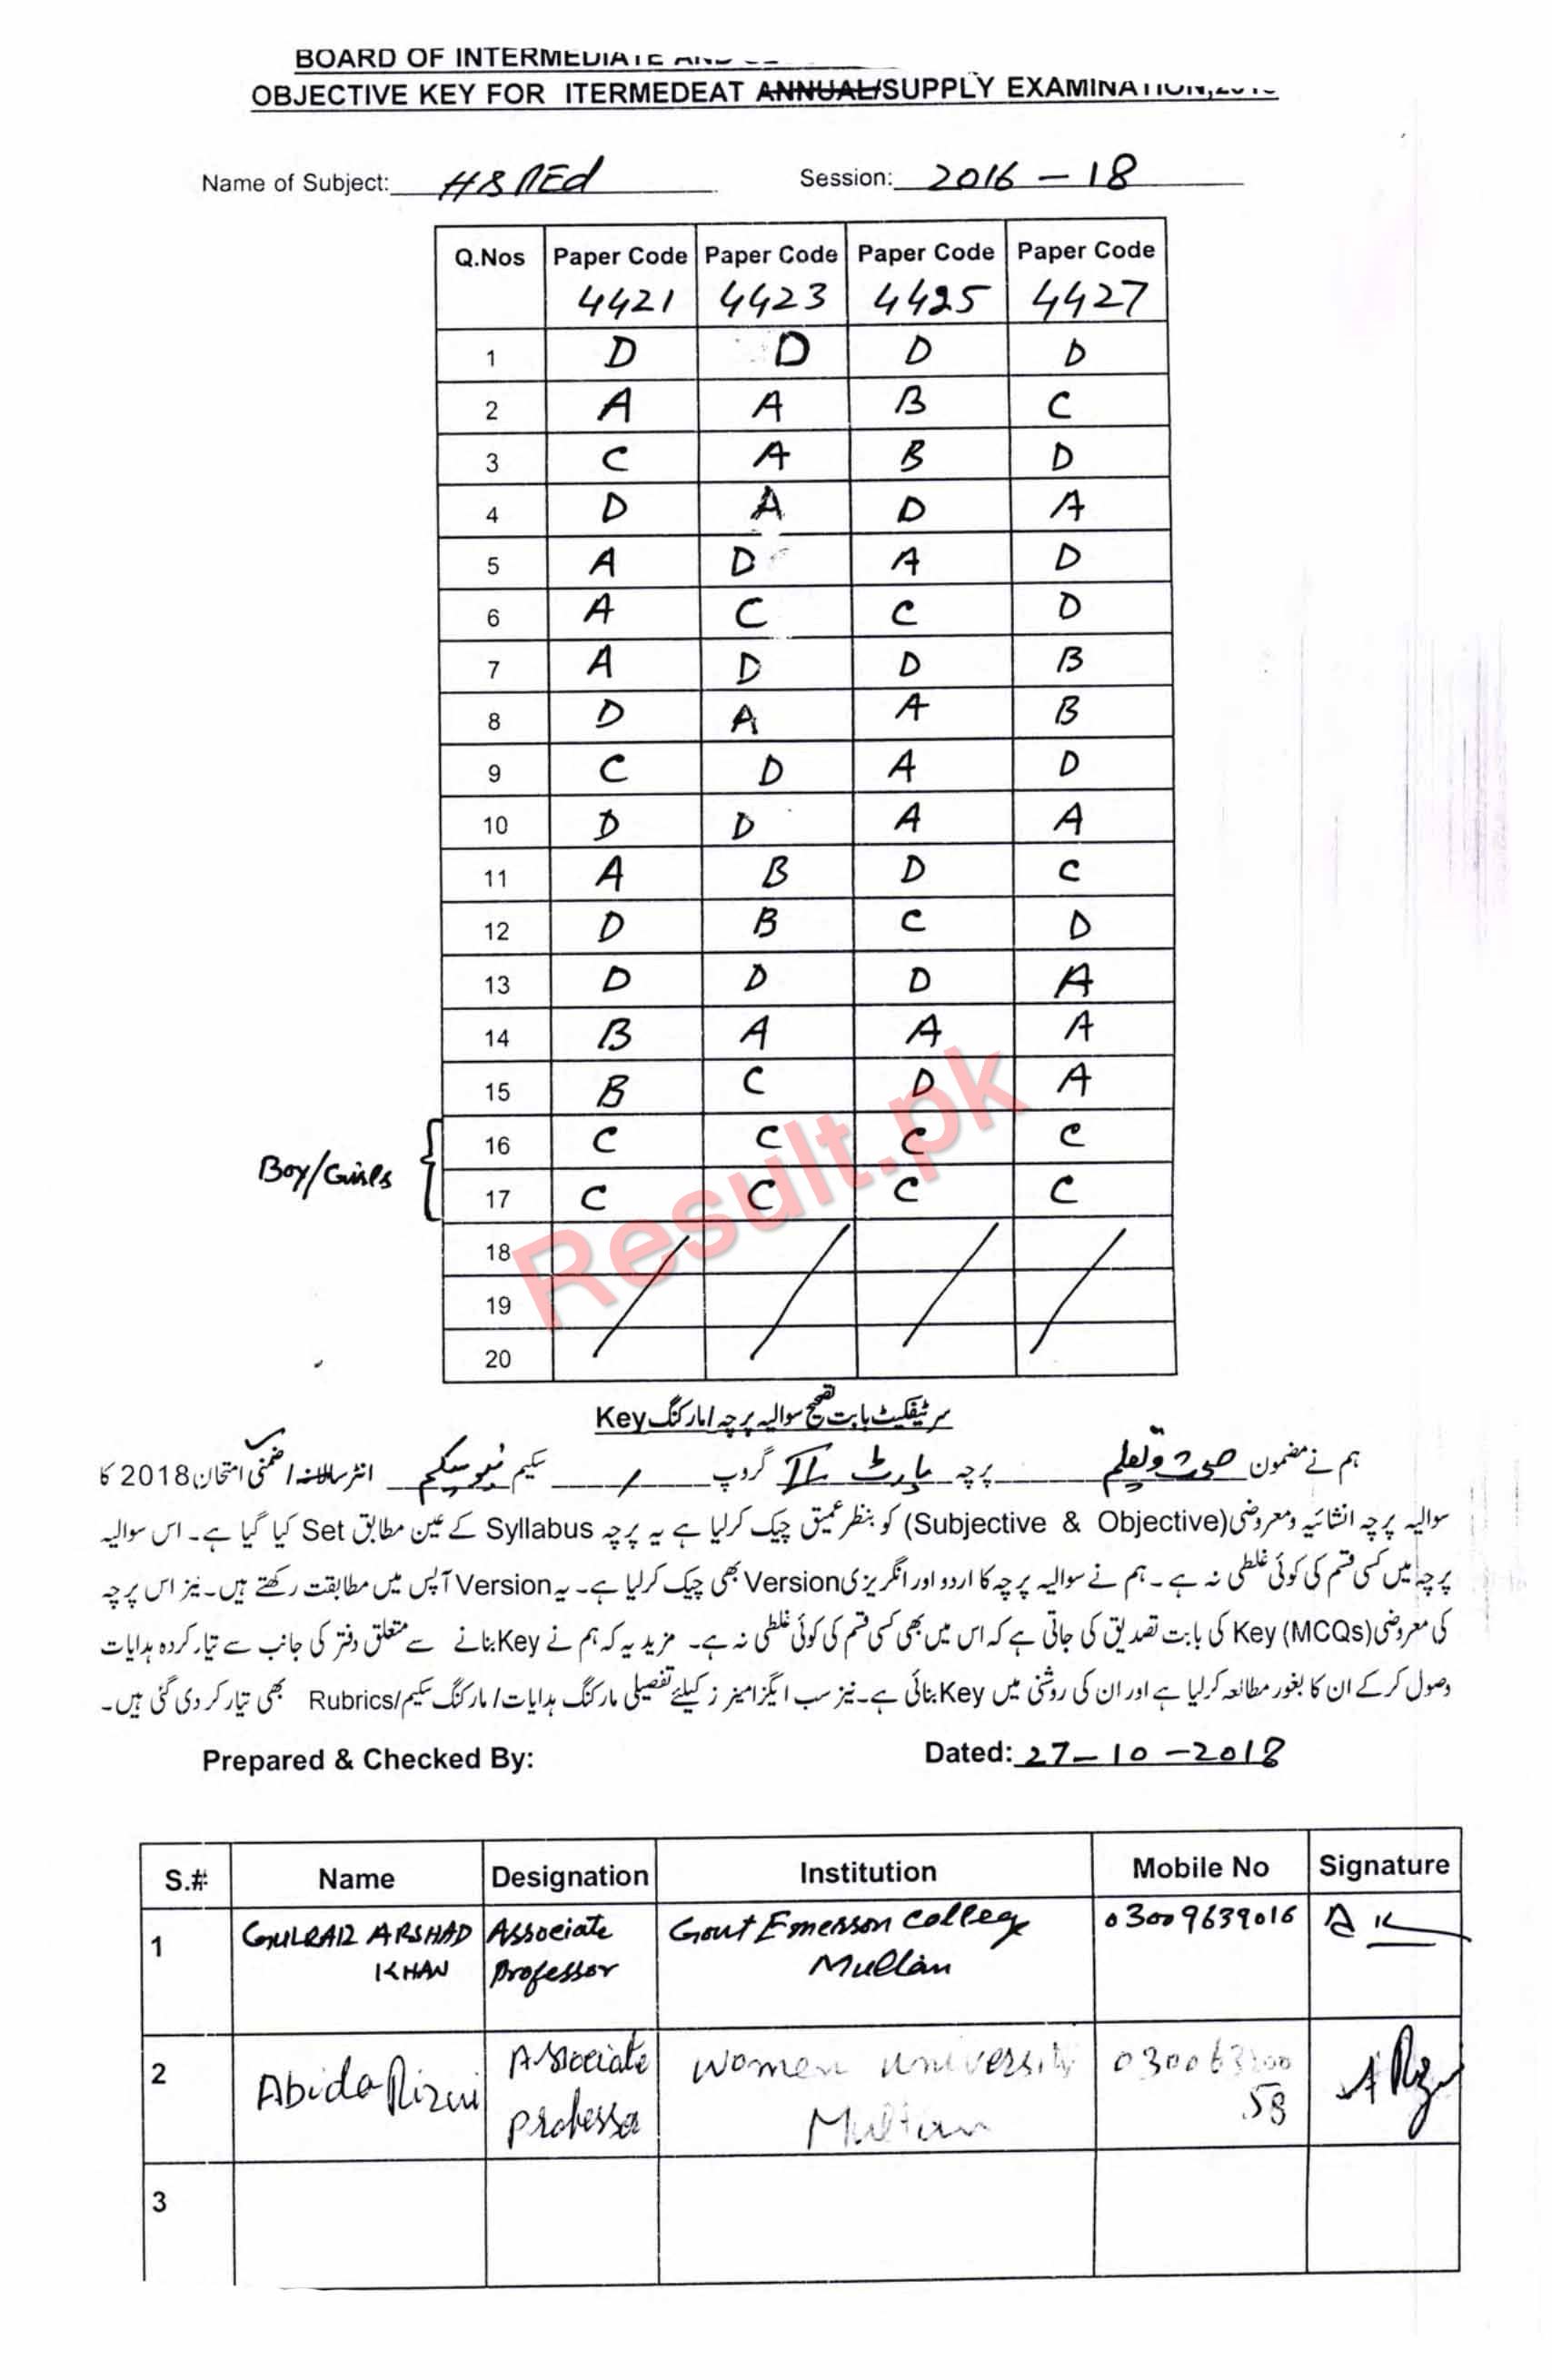 BOARD OF INTERMEDIATE AND
OBJECTIVE KEY FOR ITERMEDEAT ANNUAL/SUPPLY EXAMINATION,
Name of Subject: H&PEd Session: 2016 - 18
Q.Nos Paper Code Paper Code Paper Code Paper Code
4421 4423 4425 4427
1 D D D D
2 A A B C
3 C A B D
4 D A D A
5 A D A D
6 A C C D
7 A D D B
8 D A A B
9 C D A D
10 D D A A
11 A B D C
12 D B C D
13 D D D A
14 B A A A
15 B C D A
16 C C C C
Boy/Girls
17 C C C C
18
19
20
Result.pk
سرٹیفکیٹ بابت تصحیح سوالیہ پرچہ / مارکنگ Key
ہم نے مضمون صحت و تعلیم پرچہ پارٹ II گروپ / سکیم نیو سکیم انٹر سالانہ / ضمنی امتحان 2018 کا
سوالیہ پرچہ انشائیہ ومعروضی (Subjective & Objective) کو بنظر عمیق چیک کرلیا ہے یہ پرچہ Syllabus کے عین مطابق Set کیا گیا ہے۔ اس سوالیہ
پرچہ میں کسی قسم کی کوئی غلطی نہ ہے۔ ہم نے سوالیہ پرچہ کا اردو اور انگریزی Version بھی چیک کرلیا ہے۔ یہ Version آپس میں مطابقت رکھتے ہیں۔ نیز اس پرچہ
کی معروضی (MCQs) Key کی بابت تصدیق کی جاتی ہے کہ اس میں بھی کسی قسم کی کوئی غلطی نہ ہے۔ مزید یہ کہ ہم نے Key بنانے سے متعلق دفتر کی جانب سے تیار کردہ ہدایات
وصول کرکے ان کا بغور مطالعہ کرلیا ہے اور ان کی روشنی میں Key بنائی ہے۔ نیز سب ایگزامینرز کیلئے تفصیلی مارکنگ ہدایات / مارکنگ سکیم / Rubrics بھی تیار کر دی گئی ہیں۔
Prepared & Checked By: Dated: 27-10-2018
S.# Name Designation Institution Mobile No Signature
1 GULRAIZ ARSHAD Associate Govt Emerson College 03009639016
KHAN Professor Multan
2 Abida Rizvi Associate Women University
Professor Multan 58
3